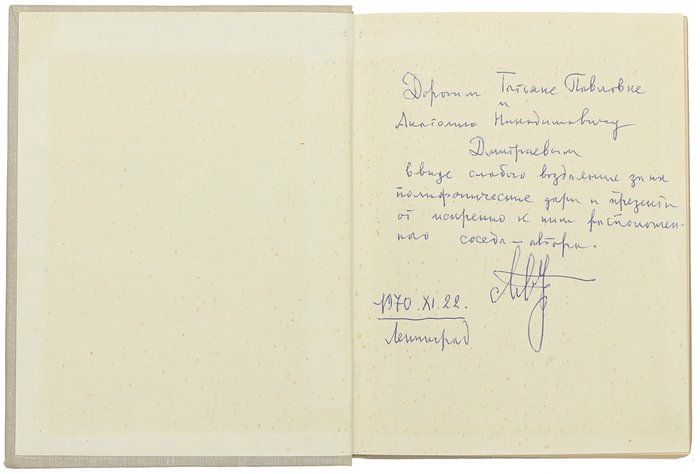 Дорогим Татьяне Павловне
и
Анатолию Никодимовичу
Дмитриевым
в виде слабого воздаяния за их
полифонические дары и презенты
от искренно к ним расположен-
ного соседа – автора.
1970.XI.22.
Ленинград